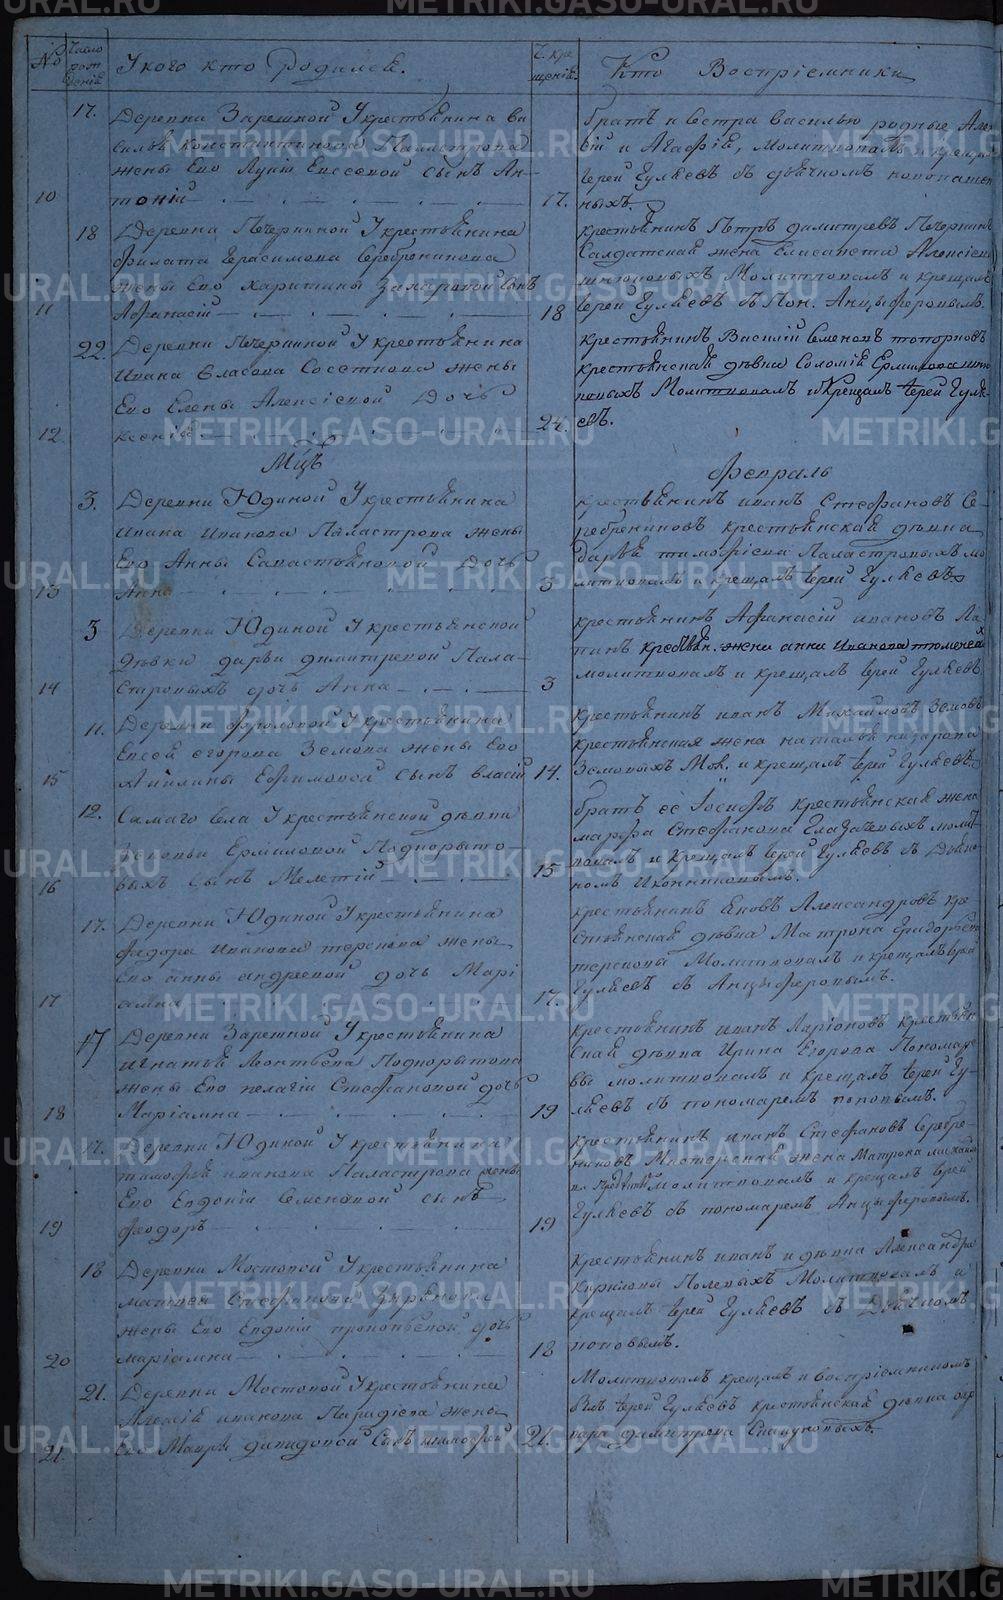 № Число рожденiе У кого кто родился. Ч. крещенiе Кто Воспрiемники
17. Деревни Зарешной У крестьянина Ва
силья Константинова Паластрова
жены Его Лукiи Елесеевой сынъ Ан-
10 тонiй
братъ и сестра Василью родные Алек
сiй и Агафiя, Молитвовалъ и крещалъ
Iерей Гуляевъ съ дьячкомъ
17. ныхъ.
18 Деревни Печеркиной У крестьянина
Филата Герасимова Серебреникова
жены Его Харитины Захаровой сынъ
11 Афанасiй
крестьянинъ Петръ Димитрiевъ Печеркинъ
Салдатская жена Елисавета Алексiева
Молитвовалъ и крещалъ
18 Iерей Гуляевъ съ Пон. Анцыферовымъ.
22. Деревни Печеркиной У крестьянина
Ивана Власова Сосетнова жены
Его Елены Алексiевой Дочь
12. Ксенiя
крестьянинъ Василiй Семеновъ Топорковъ
крестьянская дѣвка Соломiя Ермилова
Молитвовалъ и Крещалъ Iерей Гуля-
24. евъ.
Мцъ Февраль
3. Деревни Юдиной У крестьянина
Ивана Иванова Паластрова жены
Его Анны Савастьяновой Дочь
13 Анна
крестьянинъ Иванъ Стефановъ Се-
ребрениковъ крестьянская дѣвка
Дарья Тимофiева Паластровыхъ мо
3 литвовалъ и крещалъ Iерей Гуляевъ
3 Деревни Юдиной У крестьянской
Дѣвки Дарьи Димитрiевой Пала-
14 стровыхъ дочь Анна
крестьянинъ Афанасiй Ивановъ Ла-
пинъ крестьян. жена Анна Иванова
3 молитвовалъ и крещалъ Iерей Гуляевъ
11. Деревни Фроловой У крестьянина
Елесея Егорова Земова жены Его
15 Акилины Ефимовой сынъ Власiй
крестьянинъ Иванъ Михайловъ Земовъ
крестьянская жена Наталья Назарова
14. Земовыхъ Мол. и крещалъ Iерей Гуляевъ
12. Самаго села У крестьянской дѣвки
Зеновьи Ермиловой Подкорыто-
16 выхъ Сынъ Мелетiй
братъ ее Iосифъ крестьянская жена
Марфа Стефанова Глазачевыхъ молит
15 вовалъ и крещалъ Iерей Гуляевъ съ Дьяч-
комъ Иконниковымъ.
17. Деревни Юдиной У крестьянина
Федора Иванова Терскова жены
Его Анны Андреевой дочь Марi
17 амна
крестьянинъ Яковъ Александровъ кре
стьянская дѣвка Матрона Григорьева
Терсковы Молитвовалъ и крещалъ Iерей
17. Гуляевъ съ Анцыферовымъ.
17 Деревни Зарешной У крестьянина
Игнатья Леонтьева Подкорытова
жены Его Пелагiи Стефановой дочь
18 Марiамна
крестьянинъ Иванъ Ларiоновъ крестьян
ская дѣвка Ирина Егорова Пономаре
вы молитвовалъ и крещалъ Iерей Гу-
19 ляевъ съ пономаремъ Поповымъ.
17. Деревни Юдиной У крестьянина
Тимофея Иванова Паластрова жены
Его Евдокiи Семеновой сынъ
19 Феодоръ
крестьянинъ Иванъ Стефановъ Серебре-
никовъ Мастерская жена Матрона Михайло
ва молитвовалъ и крещалъ Iерей
19 Гуляевъ съ пономаремъ Анцыферовымъ.
18 Деревни Мостовой У крестьянина
Матвея Стефанова
жены Его Евдокiи Прокопьевой дочь
20 Марiамна
крестьянинъ Иванъ и дѣвка Александра
Куриловы Полевыхъ Молитвовалъ и
крещалъ Iерей Гуляевъ съ Дьячкомъ
18 Поповымъ.
21. Деревни Мостовой У крестьянина
Алексiя Иванова жены
21. Его Мавры Давидовой Сынъ Тимофей
Молитвовалъ крещалъ и воспрiемникомъ
былъ Iерей Гуляевъ крестьянская дѣвка
21. Димитрева
METRIKI.GASO-URAL.RU